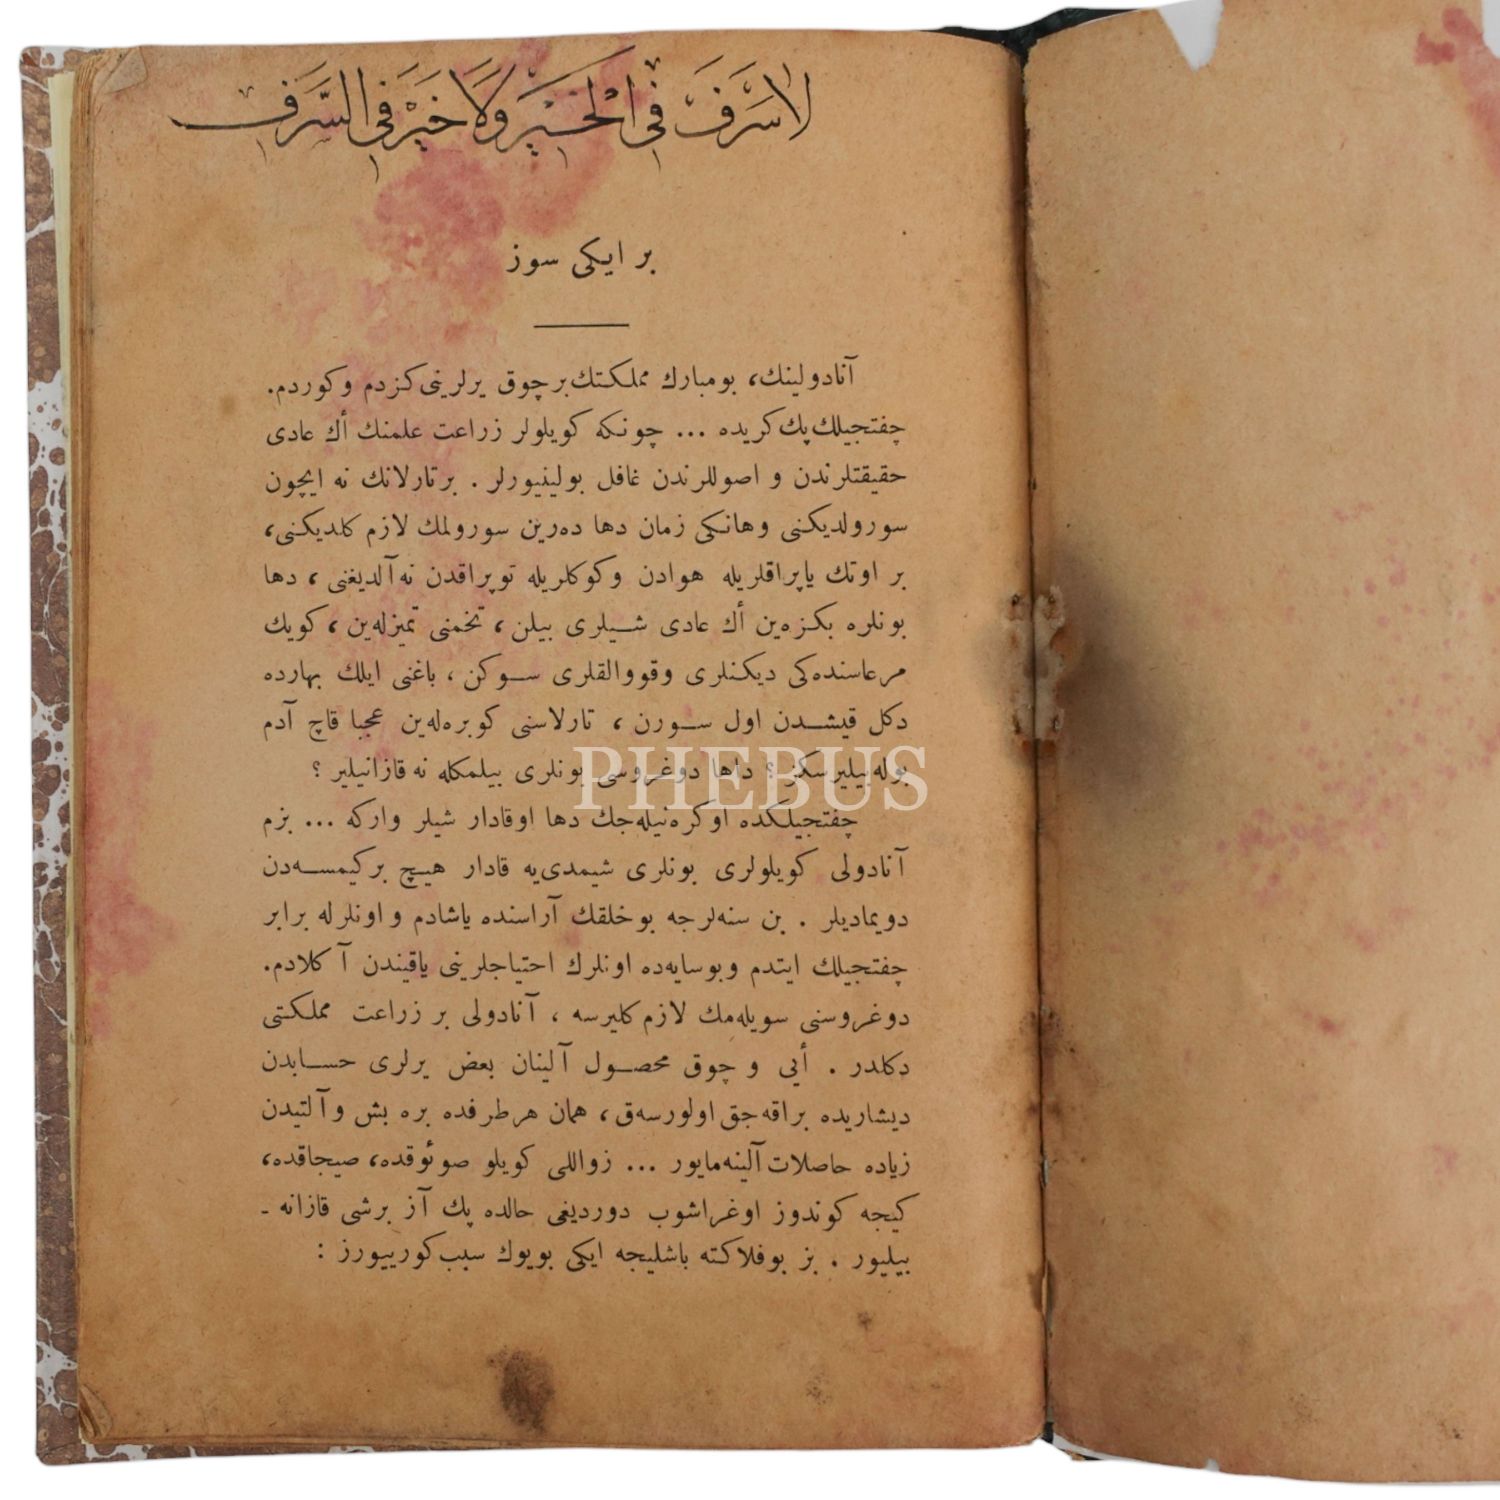 لَا سَرَفَ فِي الْخَيْرِ وَلَا خَيْرَ فِي السَّرَفِ
بر ایکی سوز
آنادولینك، بومبارك مملکتك برچوق یرلرینی کزدم وکوردم.
چفتجیلك پك کریده ... چونکه کویلولر زراعت علمنك أك عادی
حقیقتلرندن و اصوللرندن غافل بولینیورلر . برتارلانك نه ایچون
سورولدیکنی وهانکی زمان دها دەرین سورولمك لازم کلدیکنی،
بر اوتك یاپراقلریله هوادن وکوکلریله توپراقدن نه آلدیغنی ، دها
بونلره بکزەین أك عادی شیلری بیلن ، تخمنی تمیزلەین ، کویك
مرعاسندەکی دیکنلری وقووالقلری سوکن ، باغنی ایلك بهارده
دکل قیشدن اول سورن ، تارلاسنی کوبرەلەین عجبا قاچ آدم
بوله بیلیرسکز ؟ داها دوغروسی بونلری بیلمکله نه قازانیلیر ؟
چفتجیلکده اوکرەنیلەجك دها اوقادار شیلر وارکه ... بزم
آنادولی کویلولری بونلری شیمدی‌یه قادار هیچ برکیمسەدن
دویمادیلر . بن سنەلرجه بوخلقك آراسنده یاشادم و اونلرله برابر
چفتجیلك ایتدم وبوسایەده اونلرك احتیاجلرینی یاقیندن آ کلادم.
دوغروسنی سویلەمك لازم کلیرسه ، آنادولی بر زراعت مملکتی
دکلدر . أیی و چوق محصول آلینان بعض یرلری حسابدن
دیشاریده براقەجق اولورسەق ، همان هرطرفده بره بش وآلتیدن
زیاده حاصلات آلینەمایور ... زواللی کویلو صوئوقده، صیجاقده،
کیجه کوندوز اوغراشوب دوردیغی حالده پك آز برشی قازانه -
بیلیور . بز بوفلاکته باشلیجه ایکی بویوك سبب کورییورز :
PHEBUS